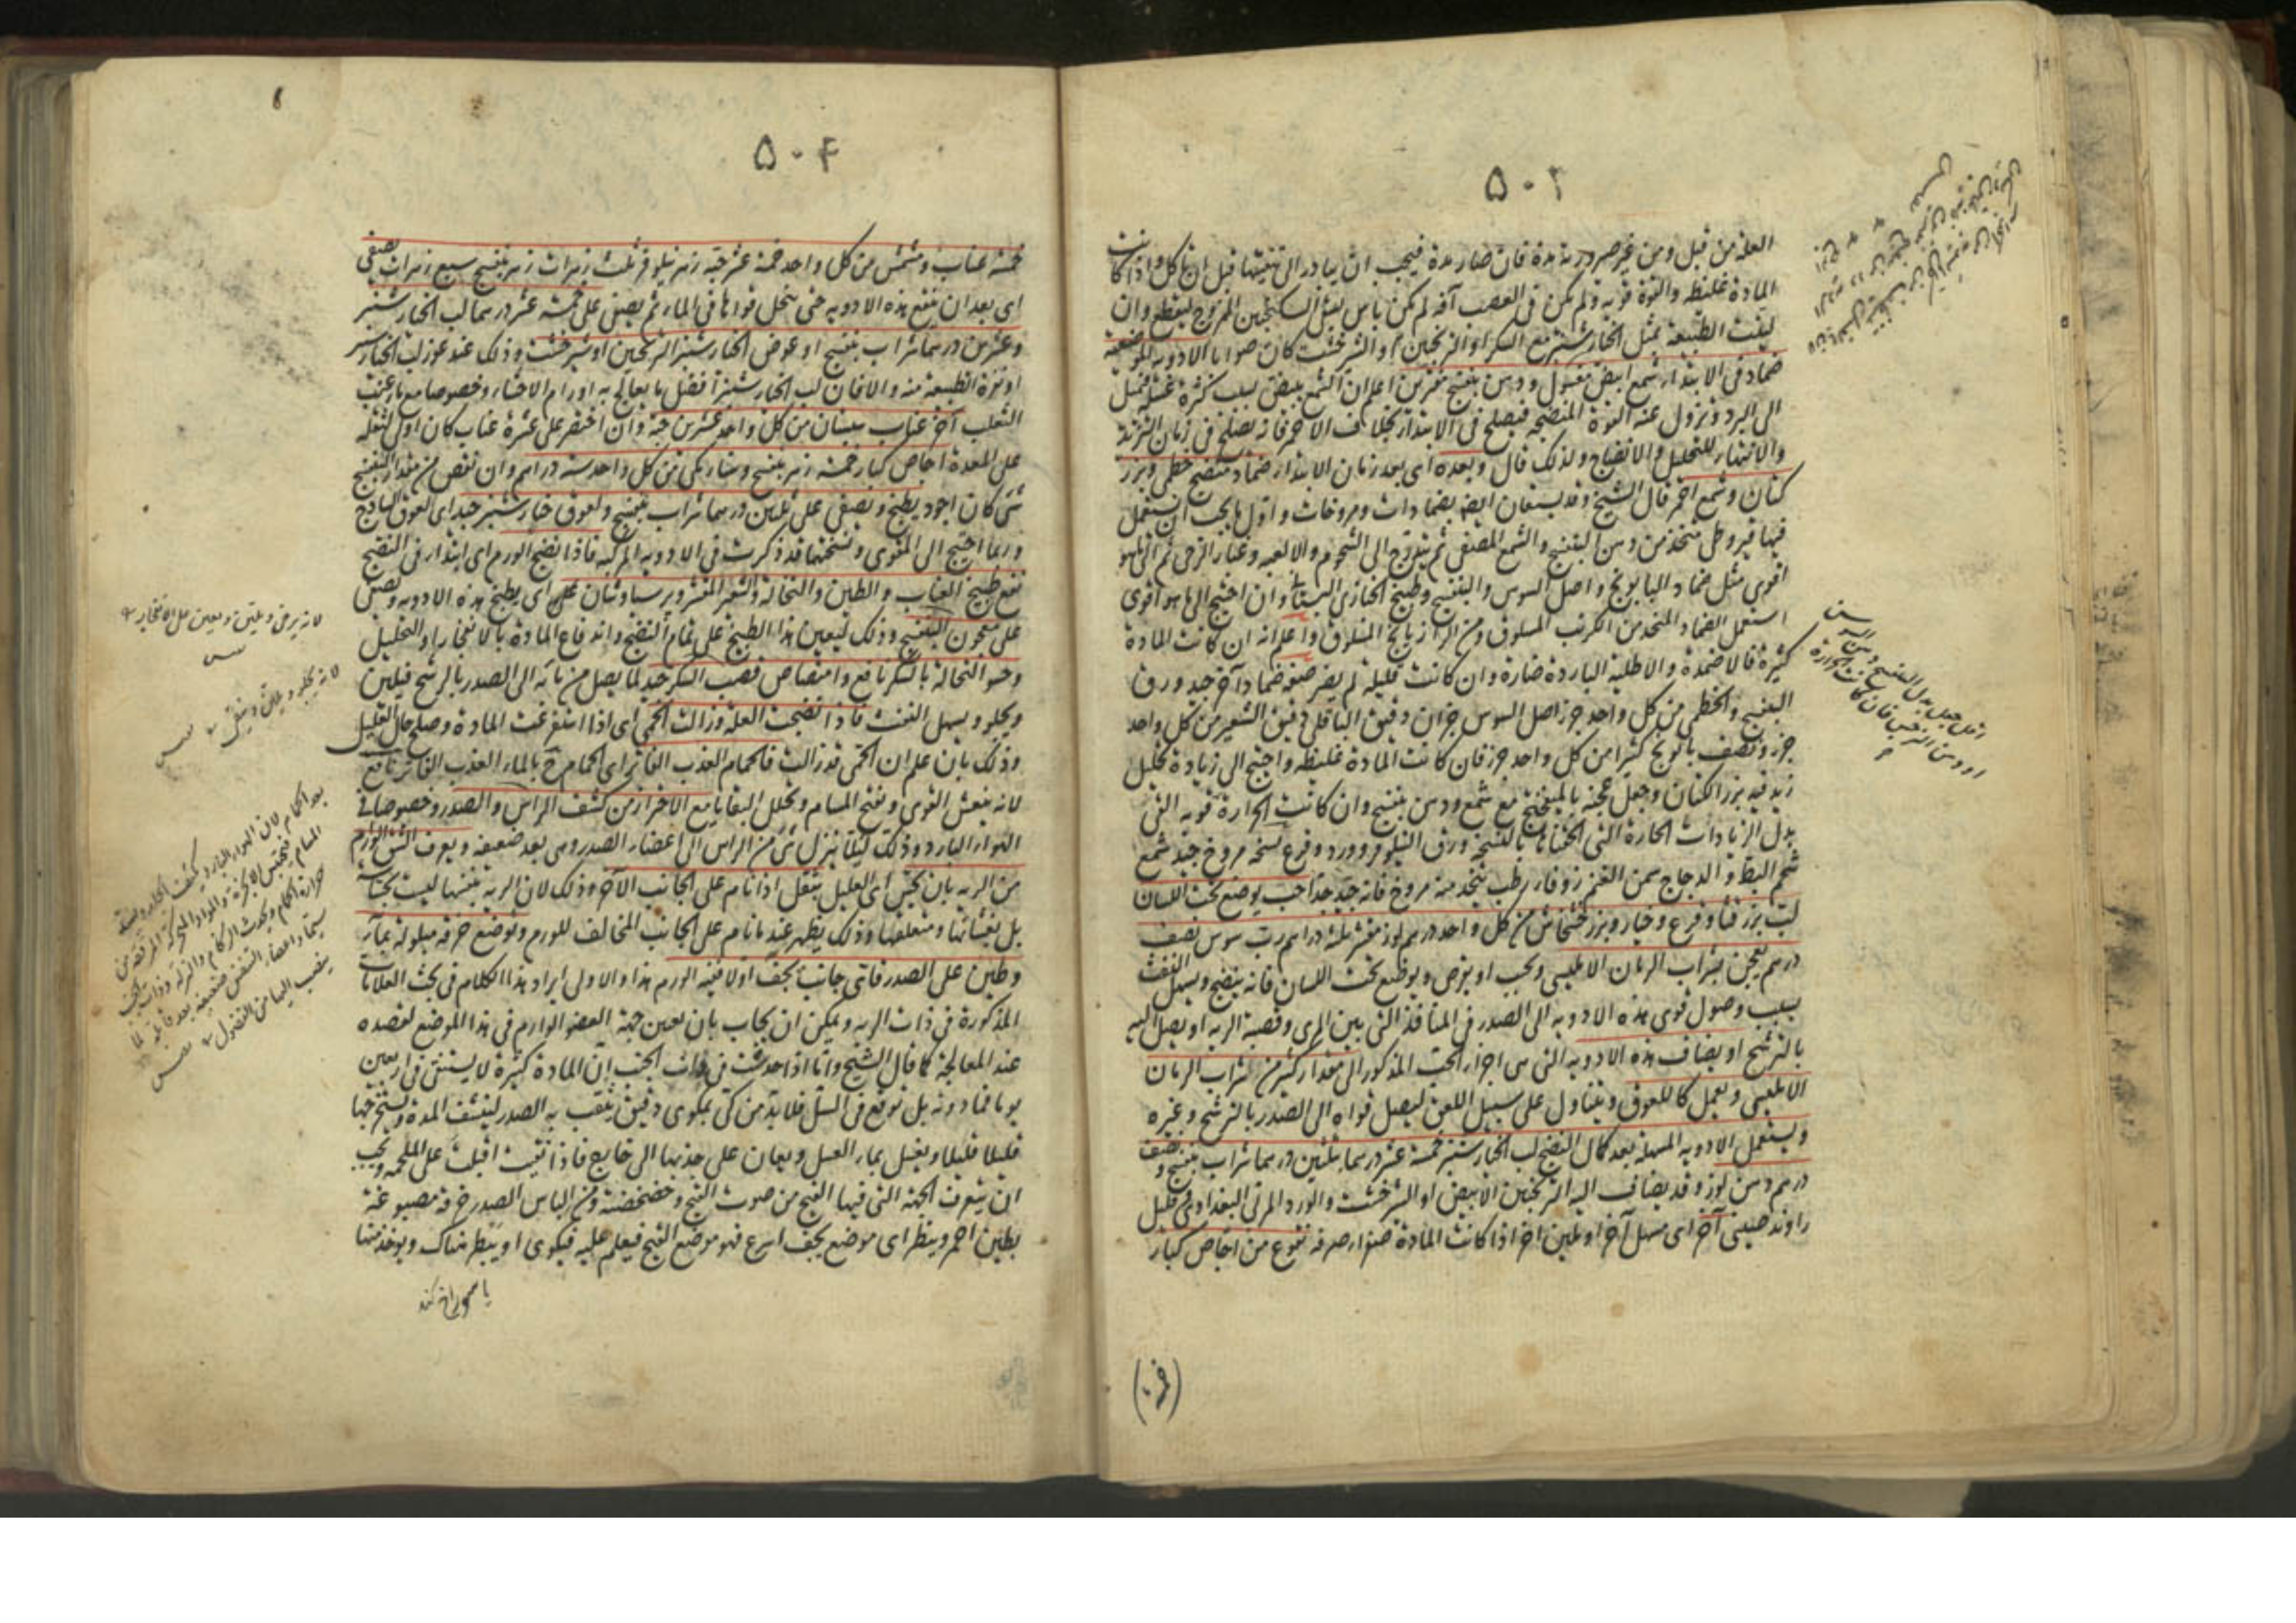 ٥٠٣
العلة من قبل ومن غير صدر به مدة فان صار مدة فيجب ان يبادر الى تنقيتها قبل ان تاكل واذا كانت
المادة غليظة والقوة قوية ولم يكن فى العصب آفة لم يكن باس بمثل السكنجبين الممزوج ليقطع وان
لينت الطبيعة بمثل الخيارشنبر مع السكر او الترنجبين والشيرخشت كان صوابا الادوية الموضعية
ضماد فى الابتداء شمع ابيض مغسول ودهن بنفسج مفترين اعلم ان الشمع يبيض بسبب كثرة غسله فيميل
الى البرد وتزول عنه القوة المنضجة فيصلح فى الابتداء بخلاف الاحمر فانه يصلح فى زمان التزيد
والانتهاء للتحليل والانضاج ولذلك قال وبعده اى بعد زمان الابتداء ضماد منضج خطمى وبزر
كتان وشمع احمر قال الشيخ وقد يستعان ايضا بضمادات ومروخات واول ما يجب ان يستعمل
فيها قيروطى متخذ من دهن البنفسج والشمع المصفى ثم يتدرج الى الشحوم والالعبة وغبار الرحى ثم الى ما هو
اقوى مثل ضماد البابونج واصل السوس والبنفسج وطبيخ الخبازى البستانى وان احتيج الى ما هو اقوى
استعمل الضماد المتخذ من الكرنب المسلوق ومن الرازيانج المسلوق واعلم انه ان كانت المادة
كثيرة فالاضمدة والاطلية الباردة ضارة وان كانت قليلة لم يضر صنعة ضماد آخر جيد ورق
البنفسج والخطمى من كل واحد جزء اصل السوس جزان دقيق الباقلى دقيق الشعير من كل واحد
جزء ونصف بابونج كثيرا من كل واحد جزء فان كانت المادة غليظة واحتيج الى زيادة تحليل
زيد فيه بزر الكتان وجعل عجنه بالميفختج مع شمع ودهن بنفسج وان كانت الحرارة قوية القى
بدل الزيادات الحارة التى الحقناها بالنسخة ورق النيلوفر وورد وقرع نسخة مروخ جيد شمع
شحم البط والدجاج سمن الغنم زوفا رطب يتخذ منه مروخ فانه جيد جدا حب يوضع تحت اللسان
لب بزر قثا وقرع وخيار وبزر خشخاش من كل واحد درهم لوز مقشر ثلثة دراهم رب سوس نصف
درهم يعجن بشراب الرمان الامليسى ويحبب او يقرص ويوضع تحت اللسان فانه ينضج ويسهل النفث
بسبب وصول قوى هذه الادوية الى الصدر فى المنافذ التى بين المرى وقصبة الرية او يصل اليه
بالترشح او يضاف هذه الادوية التى هى اجزاء الحب المذكور الى مقدار كثير من شراب الرمان
الامليسى ويعمل كاللعوق ويتناول على سبيل اللعق ليصل قواه الى الصدر بالترشح وغيره
ويستعمل الادوية المسهلة بعد كمال النضج لب الخيارشنبر خمسة عشر درهما بثلثين درهما شراب بنفسج ونصف
درهم دهن لوز وقد يضاف اليه الترنجبين الابيض او الشيرخشت والورد المربى البغدادى قليل
راوند صينى آخر اى مسهل آخر او ملين اخر اذا كانت المادة صفراء صرفة نقوع من اجاص كبار
٥٠٤
خمسة عناب ومشمش من كل واحد خمسة عشر حبة زهر نيلوفر ثلث زهرات زهر بنفسج سبع زهرات يصفى
اى بعد ان ينقع هذه الادوية حتى ينحل قواها فى الماء ثم يصفى على خمسة عشر درهما لب الخيارشنبر
وعشرين درهما شراب بنفسج او عوض الخيارشنبر الترنجبين او شيرخشت وذلك عند عوز لب الخيارشنبر
او نفرة الطبيعة منه والا فان لب الخيارشنبر افضل ما يعالج به اورام الاحشاء وخصوصا مع ماء عنب
الثعلب آخر عناب سبستان من كل واحد عشرين حبة وان اختصر على عشرة عناب كان اولى لثقله
على المعدة اجاص كبار خمسة زهر بنفسج وسنا مكى من كل واحد ستة دراهم وان نقص من مقدار البنفسج
شى كان اجود يطبخ ويصفى على ثلثين درهما شراب بنفسج ولعوق خيارشنبر جيد اى لعوق الساذج
وربما احتيج الى المقوى ونسختها قد ذكرت فى الادوية المركبة فاذا نضج الورم اى ابتداء فى النضج
نفع طبيخ العناب والطين والنخالة والشعير المقشر وبرسياوشان اى يطبخ هذه الادوية ويصفى
على معجون البنفسج وذلك ليعين هذا الطبيخ على تمام النضج واندفاع المادة بالانفجار او التحليل
وحسو النخالة بالسكر نافع وامتصاص قصب السكر جيد لما يصل من مائه الى الصدر بالرشح فيلين
ويجلو ويسهل النفث فاذا نضجت العلة وزالت الحمى اى اذا استفرغت المادة وصلح حال العليل
وذلك بان علم ان الحمى قد زالت فالحمام العذب الفاتر اى الحمام بالماء العذب الفاتر نافع
لانه ينعش القوى ويفتح المسام ويحلل البقايا مع الاحتراز من كشف الراس والصدر وخصوصا فى
الهواء البارد وذلك ليلا ينزل شى من الراس الى اعضاء الصدر وهى بعد ضعيفة ويعرف الشق الوارم
من الرية بان يحس اى العليل بثقل اذا نام على الجانب الآخر وذلك لان الرية نفسها ليست بحساسة
بل بغشائها ومتعلقها وذلك يظهر عند ما نام على الجانب المخالف للورم وتوضع خرقة مبلولة بماء
وطين على الصدر فاى جانب يجف اولا ففيه الورم هذا والاولى ايراد هذا الكلام فى بحث العلامات
المذكورة فى ذات الرية ويمكن ان يجاب بان تعين جهة العضو الوارم فى هذا الموضع لقصده
عند المعالجة كما قال الشيخ واما اذا حدثت فى ذات الجنب ان المادة كثيرة لا يستنقى فى اربعين
يوما فما دونه بل توقع فى السل فلا بد من كى بمكوى دقيق يثقب به الصدر لينشف المدة ويستخرجها
قليلا قليلا ويغسل بماء العسل ويعان على جذبها الى خارج فاذا نقيت اقبلت على الملحمة ويجب
ان يتعرف الجهة التى فيها القيح من صوت القيح وخضخضته ومن الباس الصدر خرقة مصبوغة
بطين احمر وينظر اى موضع يجف اسرع فهو موضع القيح فيعلم عليه فيكوى او يبط هناك ويوخذ منها